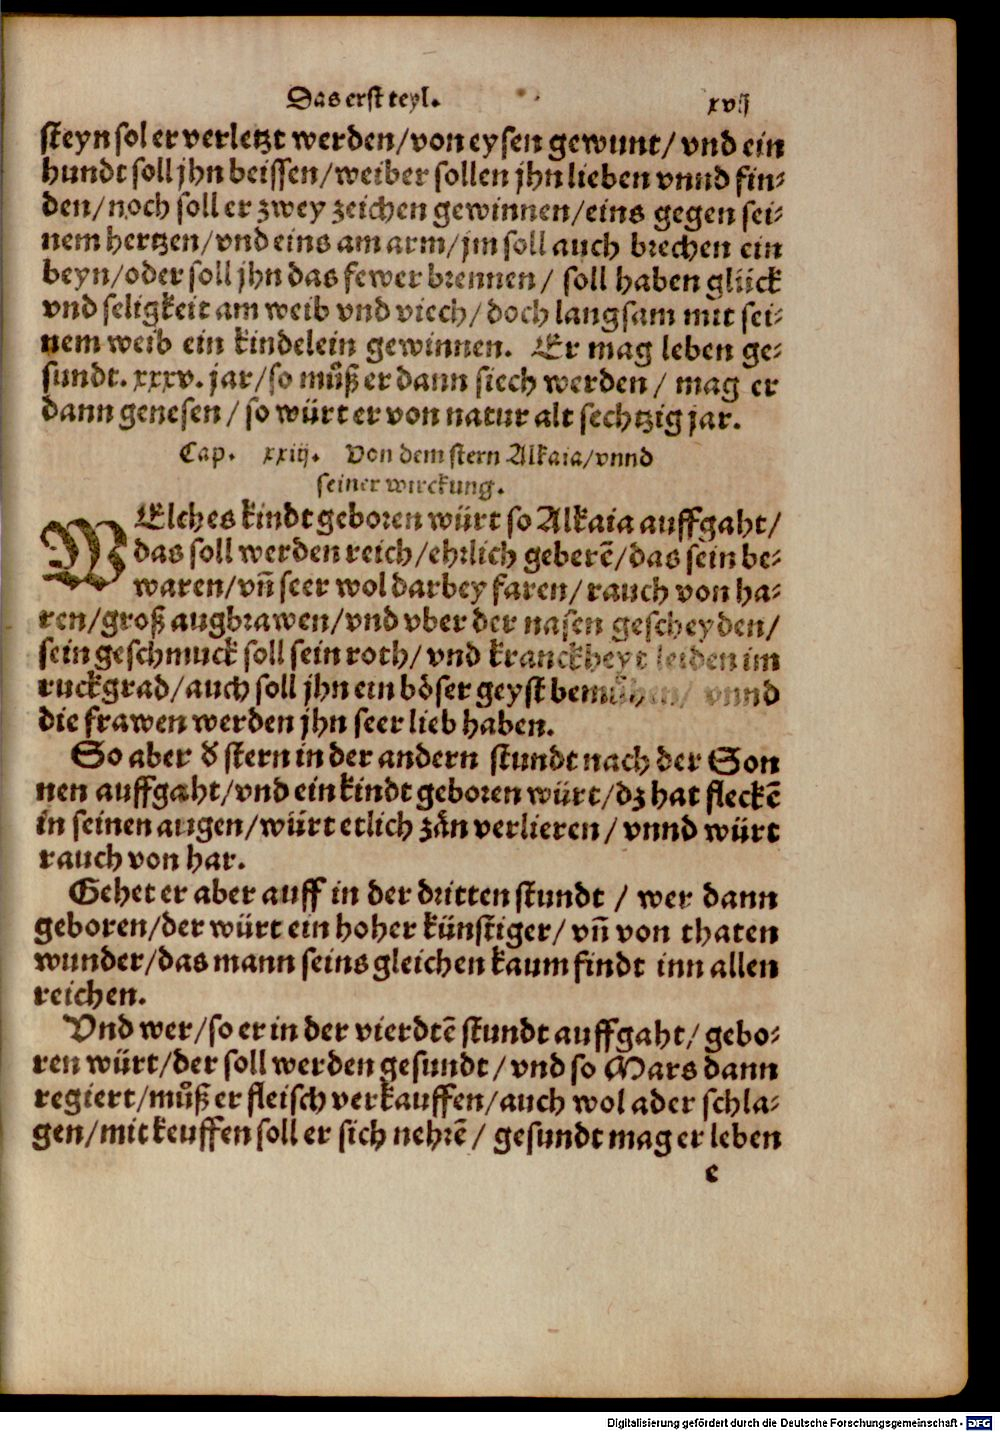 Das erst teyl. xvij
steyn sol er verletzt werden/von eysen gewunt/ vnd ein
hundt soll jhn beissen/weiber sollen jhn lieben vnnd fin-
den/noch soll er zwey zeichen gewinnen/eins gegen sei-
nem hertzen/vnd eins am arm/jm soll auch brechen ein
beyn/oder soll jhn das fewer brennen/ soll haben glück
vnd seligkeit am weib vnd viech/doch langsam mit sei-
nem weib ein kindelein gewinnen. Er mag leben ge-
sundt. xxxv. jar/so můß er dann siech werden/ mag er
dann genesen/ so würt er von natur alt sechtzig jar.
Cap. xxiij. Von dem stern Alkaia/vnnd
seiner wirckung.
WElches kindt geboren würt so Alkaia auffgaht/
das soll werden reich/ehrlich geberẽ/das sein be-
waren/vñ seer wol darbey faren/ rauch von ha-
ren/groß augbrawen/vnd vber der nasen gescheyden/
sein geschmuck soll sein roth/ vnd kranckheyt leiden im
ruckgrad/auch soll jhn ein böser geyst bemůhen/ vnnd
die frawen werden jhn seer lieb haben.
So aber d stern in der andern stundt nach der Son
nen auffgaht/vnd ein kindt geboren würt/dz hat fleckẽ
in seinen augen/würt etlich zän verlieren/ vnnd würt
rauch von har.
Gehet er aber auff in der dritten stundt / wer dann
geboren/der würt ein hoher künstiger/ vñ von thaten
wunder/das mann seins gleichen kaum findt inn allen
reichen.
Vnd wer/so er in der vierdtẽ stundt auffgaht/ gebo-
ren würt/der soll werden gesundt/ vnd so Mars dann
regiert/můß er fleisch verkauffen/auch wol ader schla-
gen/mit keuffen soll er sich nehrẽ/ gesundt mag er leben
c
Digitalisierung gefördert durch die Deutsche Forschungsgemeinschaft - DFG